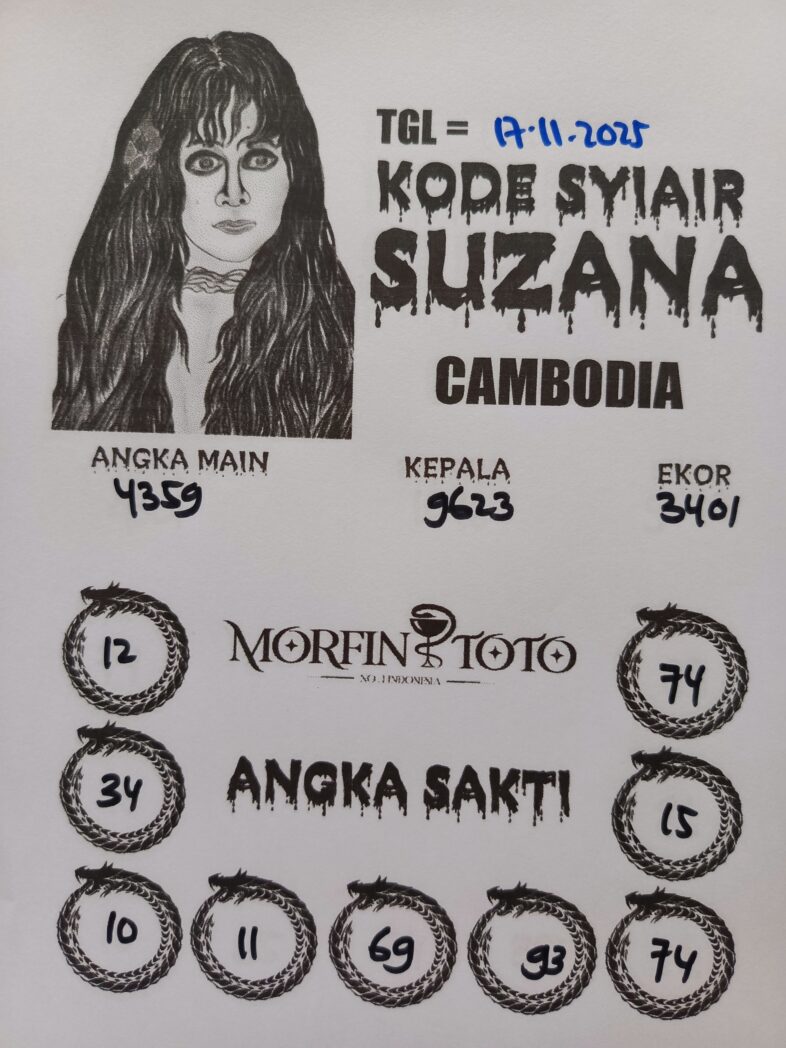 TGL = 17.11.2025
KODE SYIAIR
SUZANA
CAMBODIA
ANGKA MAIN KEPALA EKOR
4359 9623 3401
12 MORFIN TOTO 74
NO. 1 INDONESIA
34 ANGKA SAKTI 15
10 11 69 93 74